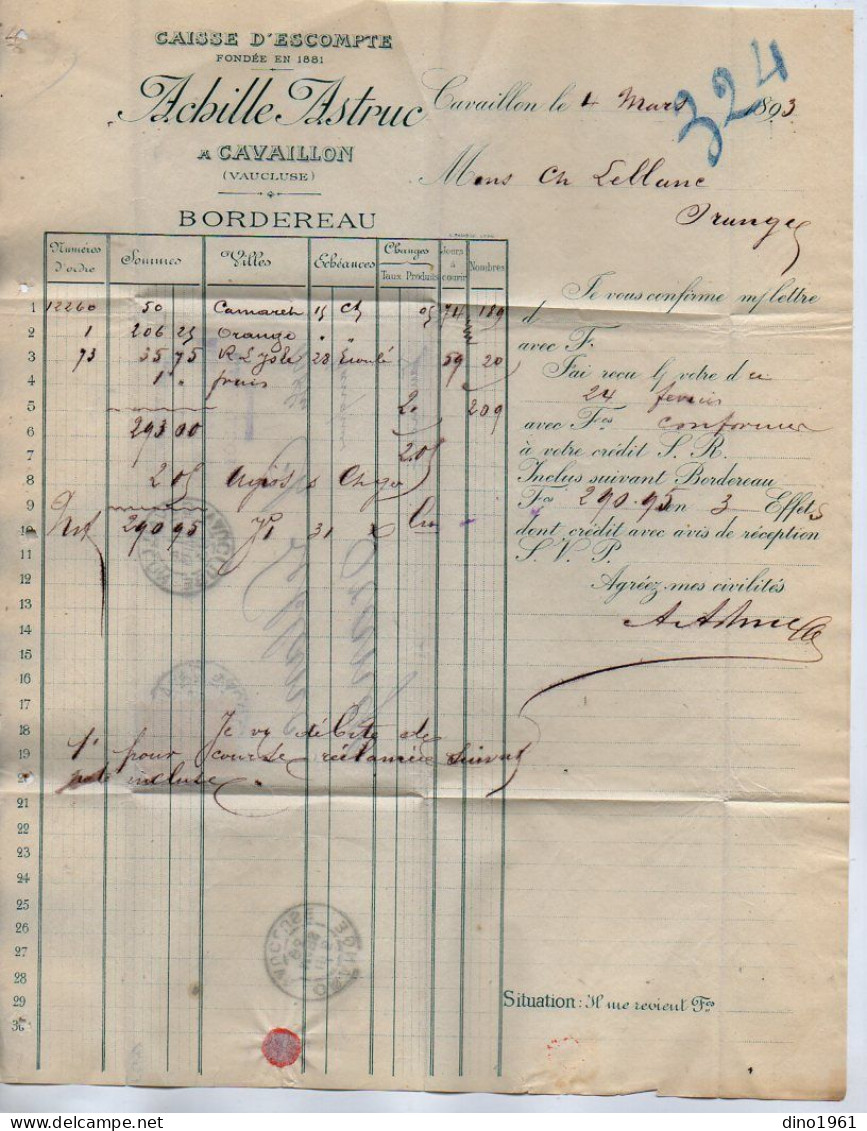 CAISSE D'ESCOMPTE
FONDÉE EN 1881
Achille Astruc
A CAVAILLON
(VAUCLUSE)
BORDEREAU
Cavaillon le 4 Mars 1893
324
Mons Ch Leblanc
Orange
Numéros d'ordre Sommes Villes Echéances Changes Taux Produits Jours à courir Nombres
1 12260 50 Camaret 15 05 74 189
2 1 206 25 Orange " "
3 73 35 75 28 59 20
4 1 " frais
5 2. 209
6 293 00
7 2.05
8 2 05 Agios &
9
10 Net 290 95 31
11
12
13
14
15
16
17
18 Je vs débite de
19 1f pour course réclamée suivant
20 incluse.
21
22
23
24
25
26
27
28
29
30
Je vous confirme m/ lettre
d
avec F.
J'ai reçu l/ votre du
24 fevrier
avec Fcs conformer
à votre crédit S. R.
Inclus suivant Bordereau
Fcs 290.95 en 3 Effets
dont crédit avec avis de réception
S. V. P.
Agréez mes civilités
A. Astruc
Situation: Il me revient Fcs
ORANGE
VAUCLUSE
dino1961